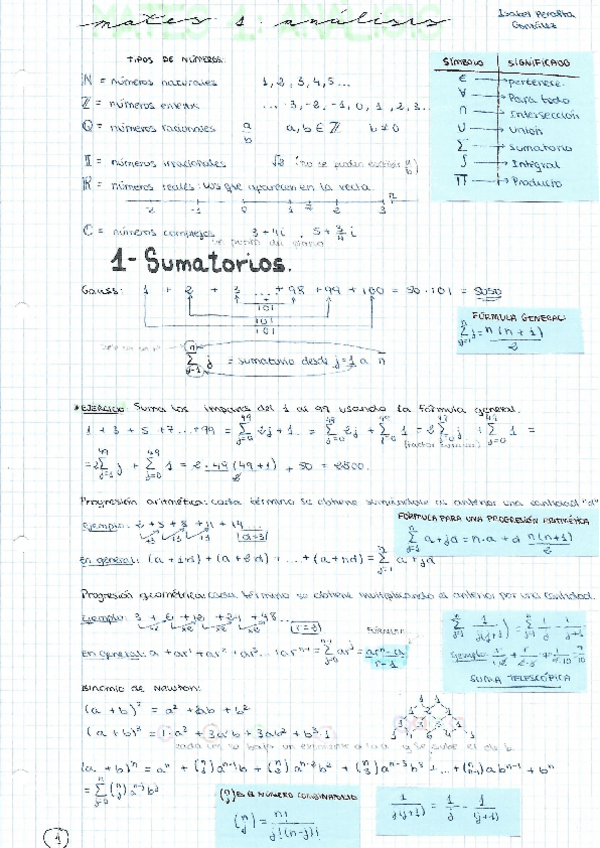 mates 1: análisis
Isabel Peralta González
TIPOS DE NÚMEROS:
ℕ = números naturales 1, 2, 3, 4, 5...
ℤ = números enteros ... -3, -2, -1, 0, 1, 2, 3...
ℚ = números racionales a/b a, b ∈ ℤ b ≠ 0
𝕀 = números irracionales √2 (no se pueden escribir a/b)
ℝ = números reales: los que aparecen en la recta.
-2 -1 0 1 2 3 π
ℂ = números complejos 3+4i,
SÍMBOLO SIGNIFICADO
∈ → pertenece.
∀ → Para todo
∩ → Intersección
∪ → unión
Σ → sumatorio
∫ → Integral
∏ → Producto
1- Sumatorios.
Gauss: 1 + 2 + 3 ... + 98 + 99 + 100 = 50·101 = 5050
101
101
101
FÓRMULA GENERAL:
∑_{j=1}^{n} j = n(n+1)/2
∑_{j=1}^{n} j = sumatorio desde j=1 a n
*EJERCICIO: Suma los impares del 1 al 99 usando la fórmula general.
1+3+5+7...+99 = ∑_{j=0}^{49} 2j+1 = ∑_{j=0}^{49} 2j + ∑_{j=0}^{49} 1 = 2∑_{j=0}^{49} j + ∑_{j=0}^{49} 1 =
(factor común)
= 2∑_{j=1}^{49} j + ∑_{j=0}^{49} 1 = 2·49(49+1)/2 + 50 = 2500.
Progresión aritmética: cada término se obtiene sumándole al anterior una cantidad "d"
Ejemplo: 2+5+8+11+14... (d=3)
+3 +3 +3
FÓRMULA PARA UNA PROGRESIÓN ARITMÉTICA
∑_{j=1}^{n} a+jd = n·a + d n(n+1)/2
En general: (a+1d)+(a+2d)+...+(a+nd) = ∑_{j=1}^{n} a+jd
Progresión geométrica: cada término se obtiene multiplicando al anterior por una cantidad.
Ejemplo: 3+6+12+24+48... (r=2)
×2 ×2 ×2 ×2
FÓRMULA
En general: a+ar¹+ar²+ar³...+ar^{n-1} = ∑_{j=0}^{n-1} ar^j = (ar^n - a)/(r-1)
∑_{j=1}^{n} 1/(j(j+1)) = ∑_{j=1}^{n} 1/j - 1/(j+1)
Ejemplo:
SUMA TELESCÓPICA
Binomio de Newton:
(a+b)² = a²+2ab+b²
(a+b)³ = 1·a³+3a²b+3ab²+b³·1
cada vez se baja un exponente a la a y se sube el de b.
(a+b)^n = a^n + (n 1)a^{n-1}b + (n 2)a^{n-2}b² + (n 3)a^{n-3}b³ + ... + (n n-1)ab^{n-1} + b^n
= ∑_{j=0}^{n} (n j) a^{n-j}b^j
(n j) ES EL NÚMERO COMBINATORIO
(n j) = n!/(j!(n-j)!)
1/(j(j+1)) = 1/j - 1/(j+1)
1